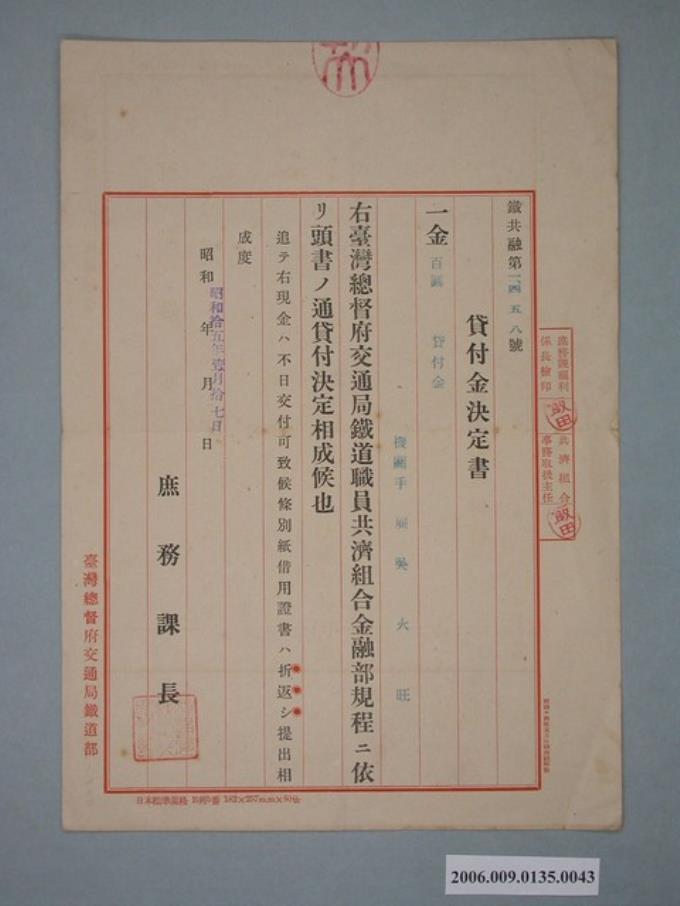 鐵共融第一四五八號
貸付金決定書
一金百圓 貸付金
機關手 吳火旺
右臺灣總督府交通局鐵道職員共濟組合金融部規程ニ依
リ頭書ノ通貸付決定相成候也
追テ右現金ハ不日交付可致候條別紙借用證書ハ折返シ提出相
成度
昭和 年 月 日
昭和拾五年壹月拾七日
庶務課長
臺灣總督府交通局鐵道部
庶務課福利
係長檢印
飯田
共濟組合
事務取扱主任
飯田
日本標準規格 182×257m.m×80
2006.009.0135.0043